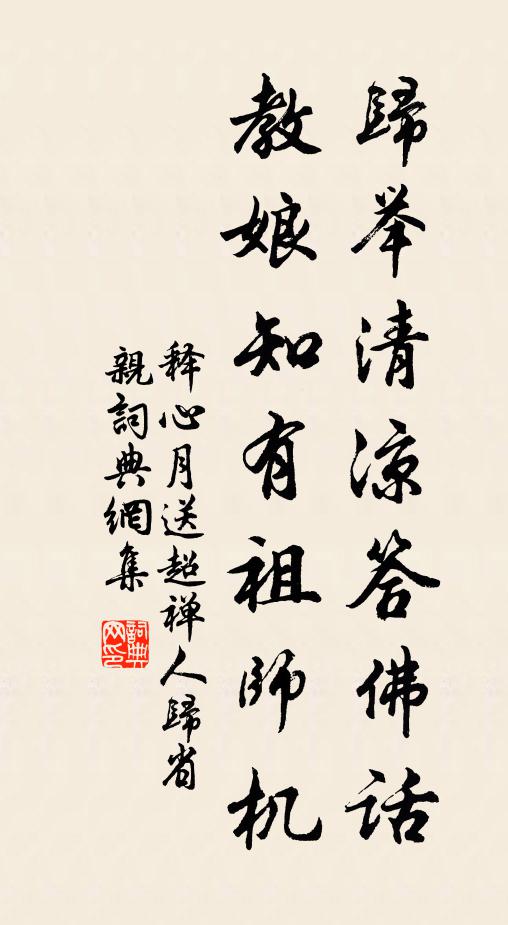 歸举清涼答佛话
教娘知有祖師机
释心月送超禅人歸省
親詞典網集
詞典网印